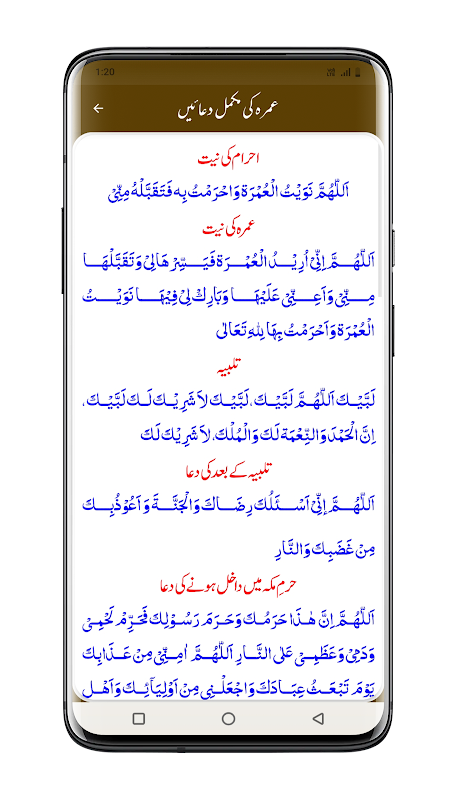 1:20
عمرہ کی مکمل دعائیں
احرام کی نیت
اَللّٰهُمَّ نَوَيْتُ الْعُمْرَةَ وَاحْرَمْتُ بِهٖ فَتَقَبَّلْهُ مِنِّیْ
عمرہ کی نیت
اَللّٰهُمَّ اِنِّیْ اُرِيْدُ الْعُمْرَةَ فَيَسِّرْهَا لِیْ وَتَقَبَّلْهَا
مِنِّیْ وَاَعِنِّیْ عَلَيْهَا وَبَارِكْ لِیْ فِيْهَا نَوَيْتُ
الْعُمْرَةَ وَاَحْرَمْتُ بِهَا لِلّٰهِ تَعَالٰی
تلبیہ
لَبَّيْكَ اَللّٰهُمَّ لَبَّيْكَ، لَبَّيْكَ لَا شَرِيْكَ لَكَ لَبَّيْكَ،
اِنَّ الْحَمْدَ وَالنِّعْمَةَ لَكَ وَالْمُلْكَ، لَا شَرِيْكَ لَكَ
تلبیہ کے بعد کی دعا
اَللّٰهُمَّ اِنِّیْ اَسْئَلُكَ رِضَاكَ وَالْجَنَّةَ وَاَعُوْذُبِكَ
مِنْ غَضَبِكَ وَالنَّارِ
حرم مکہ میں داخل ہونے کی دعا
اَللّٰهُمَّ اِنَّ هٰذَا حَرَمُكَ وَحَرَمُ رَسُوْلِكَ فَحَرِّمْ لَحْمِیْ
وَدَمِیْ وَعَظْمِیْ عَلَی النَّارِ اَللّٰهُمَّ اٰمِنِّیْ مِنْ عَذَابِكَ
يَوْمَ تَبْعَثُ عِبَادَكَ وَاجْعَلْنِیْ مِنْ اَوْلِيَآئِكَ وَاَهْلِ